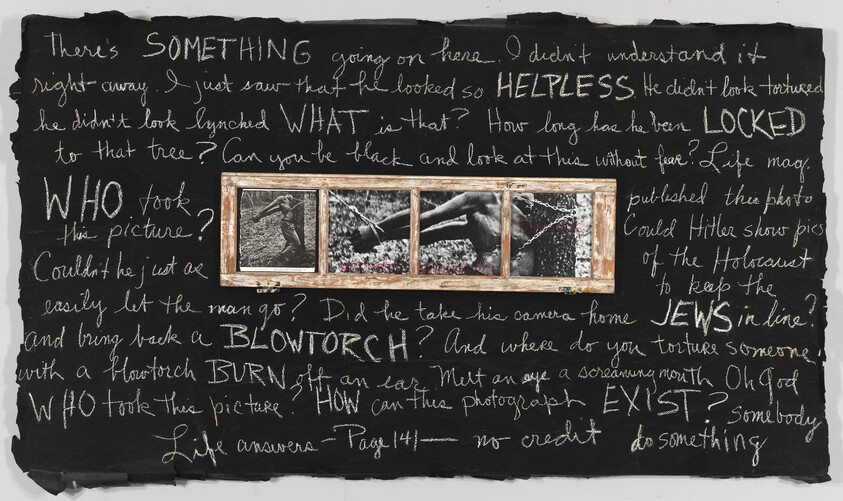 There's SOMETHING going on here. I didn't understand it
right away. I just saw that he looked so HELPLESS He didn't look tortured
he didn't look lynched. WHAT is that? How long has he been LOCKED
to that tree? Can you be black and look at this without fear? Life mag.
published this photo
WHO took
this picture?
Could Hitler show pics
of the Holocaust
to keep the
JEWS in line?
Couldn't he just as
easily let the man go? Did he take his camera home
and bring back a BLOWTORCH? And where do you torture someone
with a blowtorch BURN off an ear Melt an eye a screaming mouth Oh God
WHO took this picture? HOW can this photograph EXIST? Somebody
Life answers - Page 141 - no credit do something